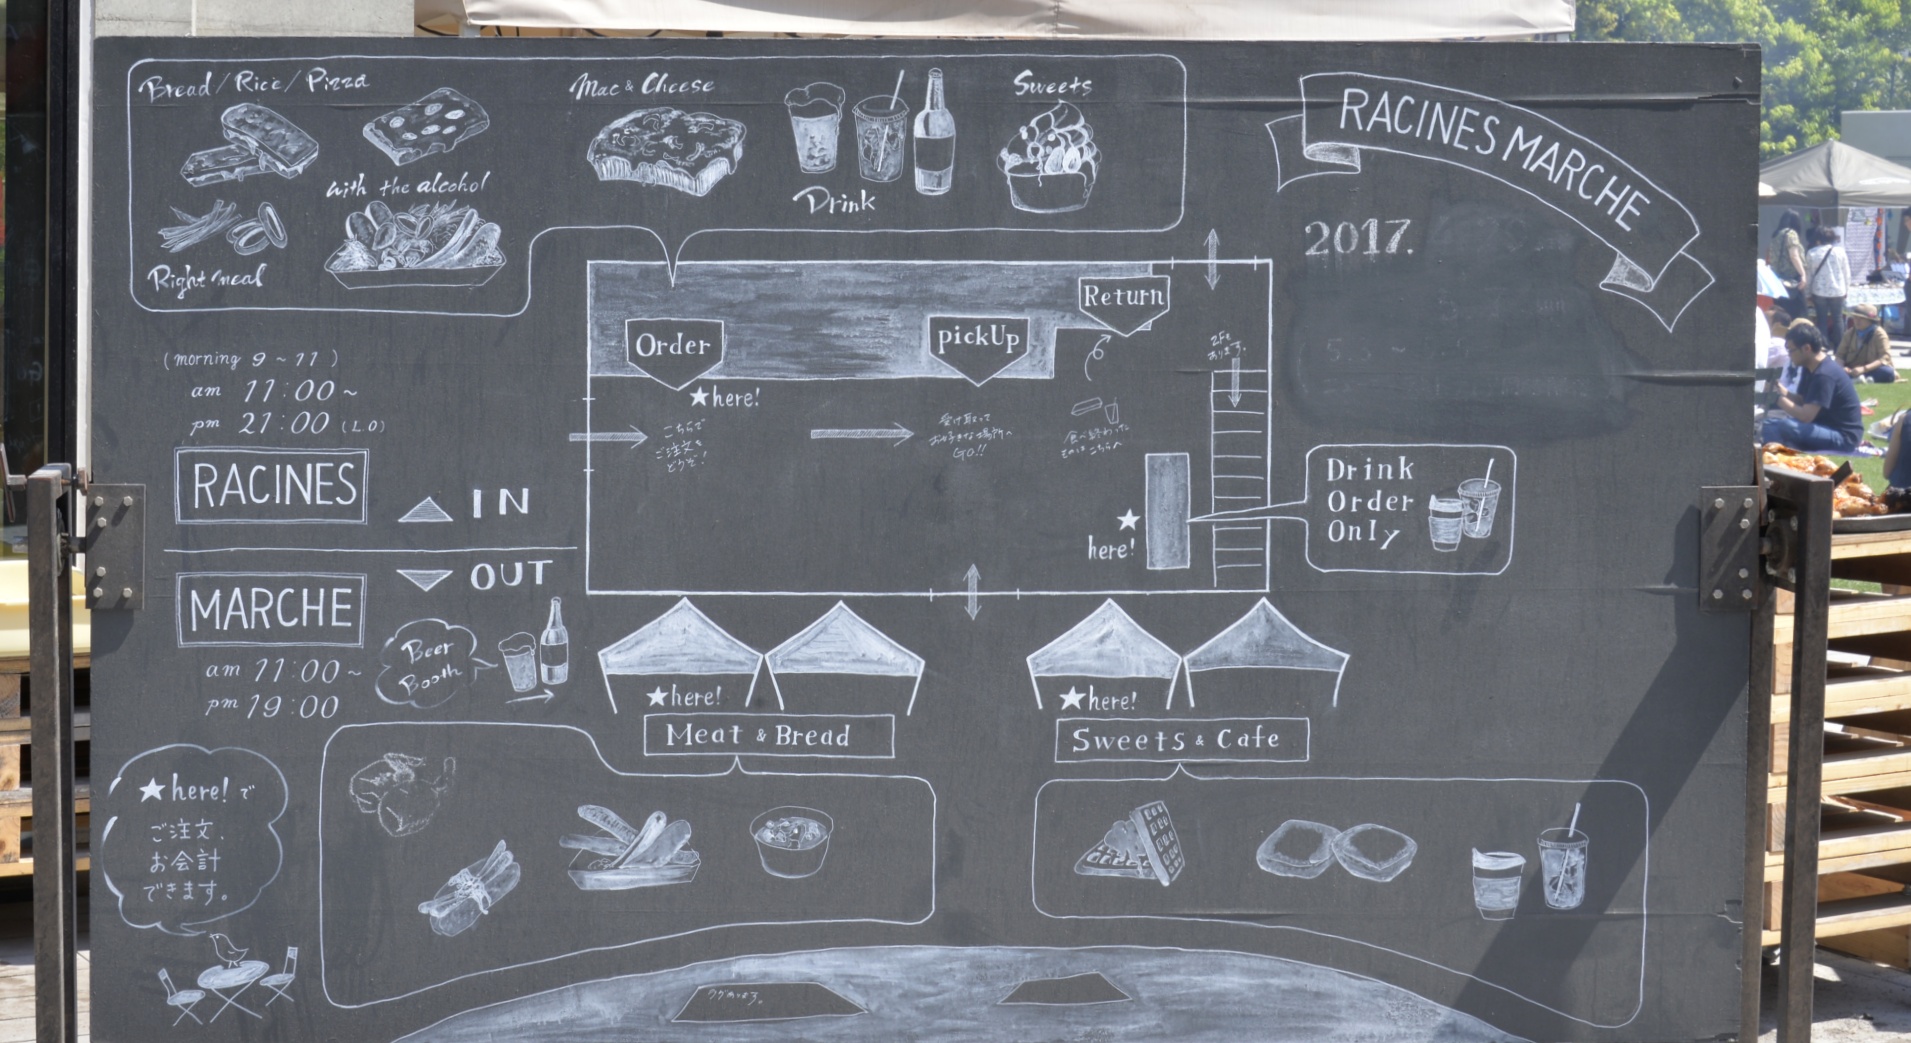 Bread / Rice / Pizza
with the alcohol
Right meal
Mac & Cheese
Drink
Sweets
RACINES MARCHE
2017.
(morning 9 ~ 11 )
am 11:00 ~
pm 21:00 (L.O)
RACINES
IN
OUT
MARCHE
am 11:00 ~
pm 19:00
Beer
Booth
Order
★here!
こちらで
ご注文を
どうぞ!
pickUp
受け取って
お好きな場所へ
GO!!
Return
食べ終わったら
こちらへ
★
here!
Drink
Order
Only
★here!
Meat & Bread
★here!
Sweets & Cafe
★here! で
ご注文、
お会計
できます。